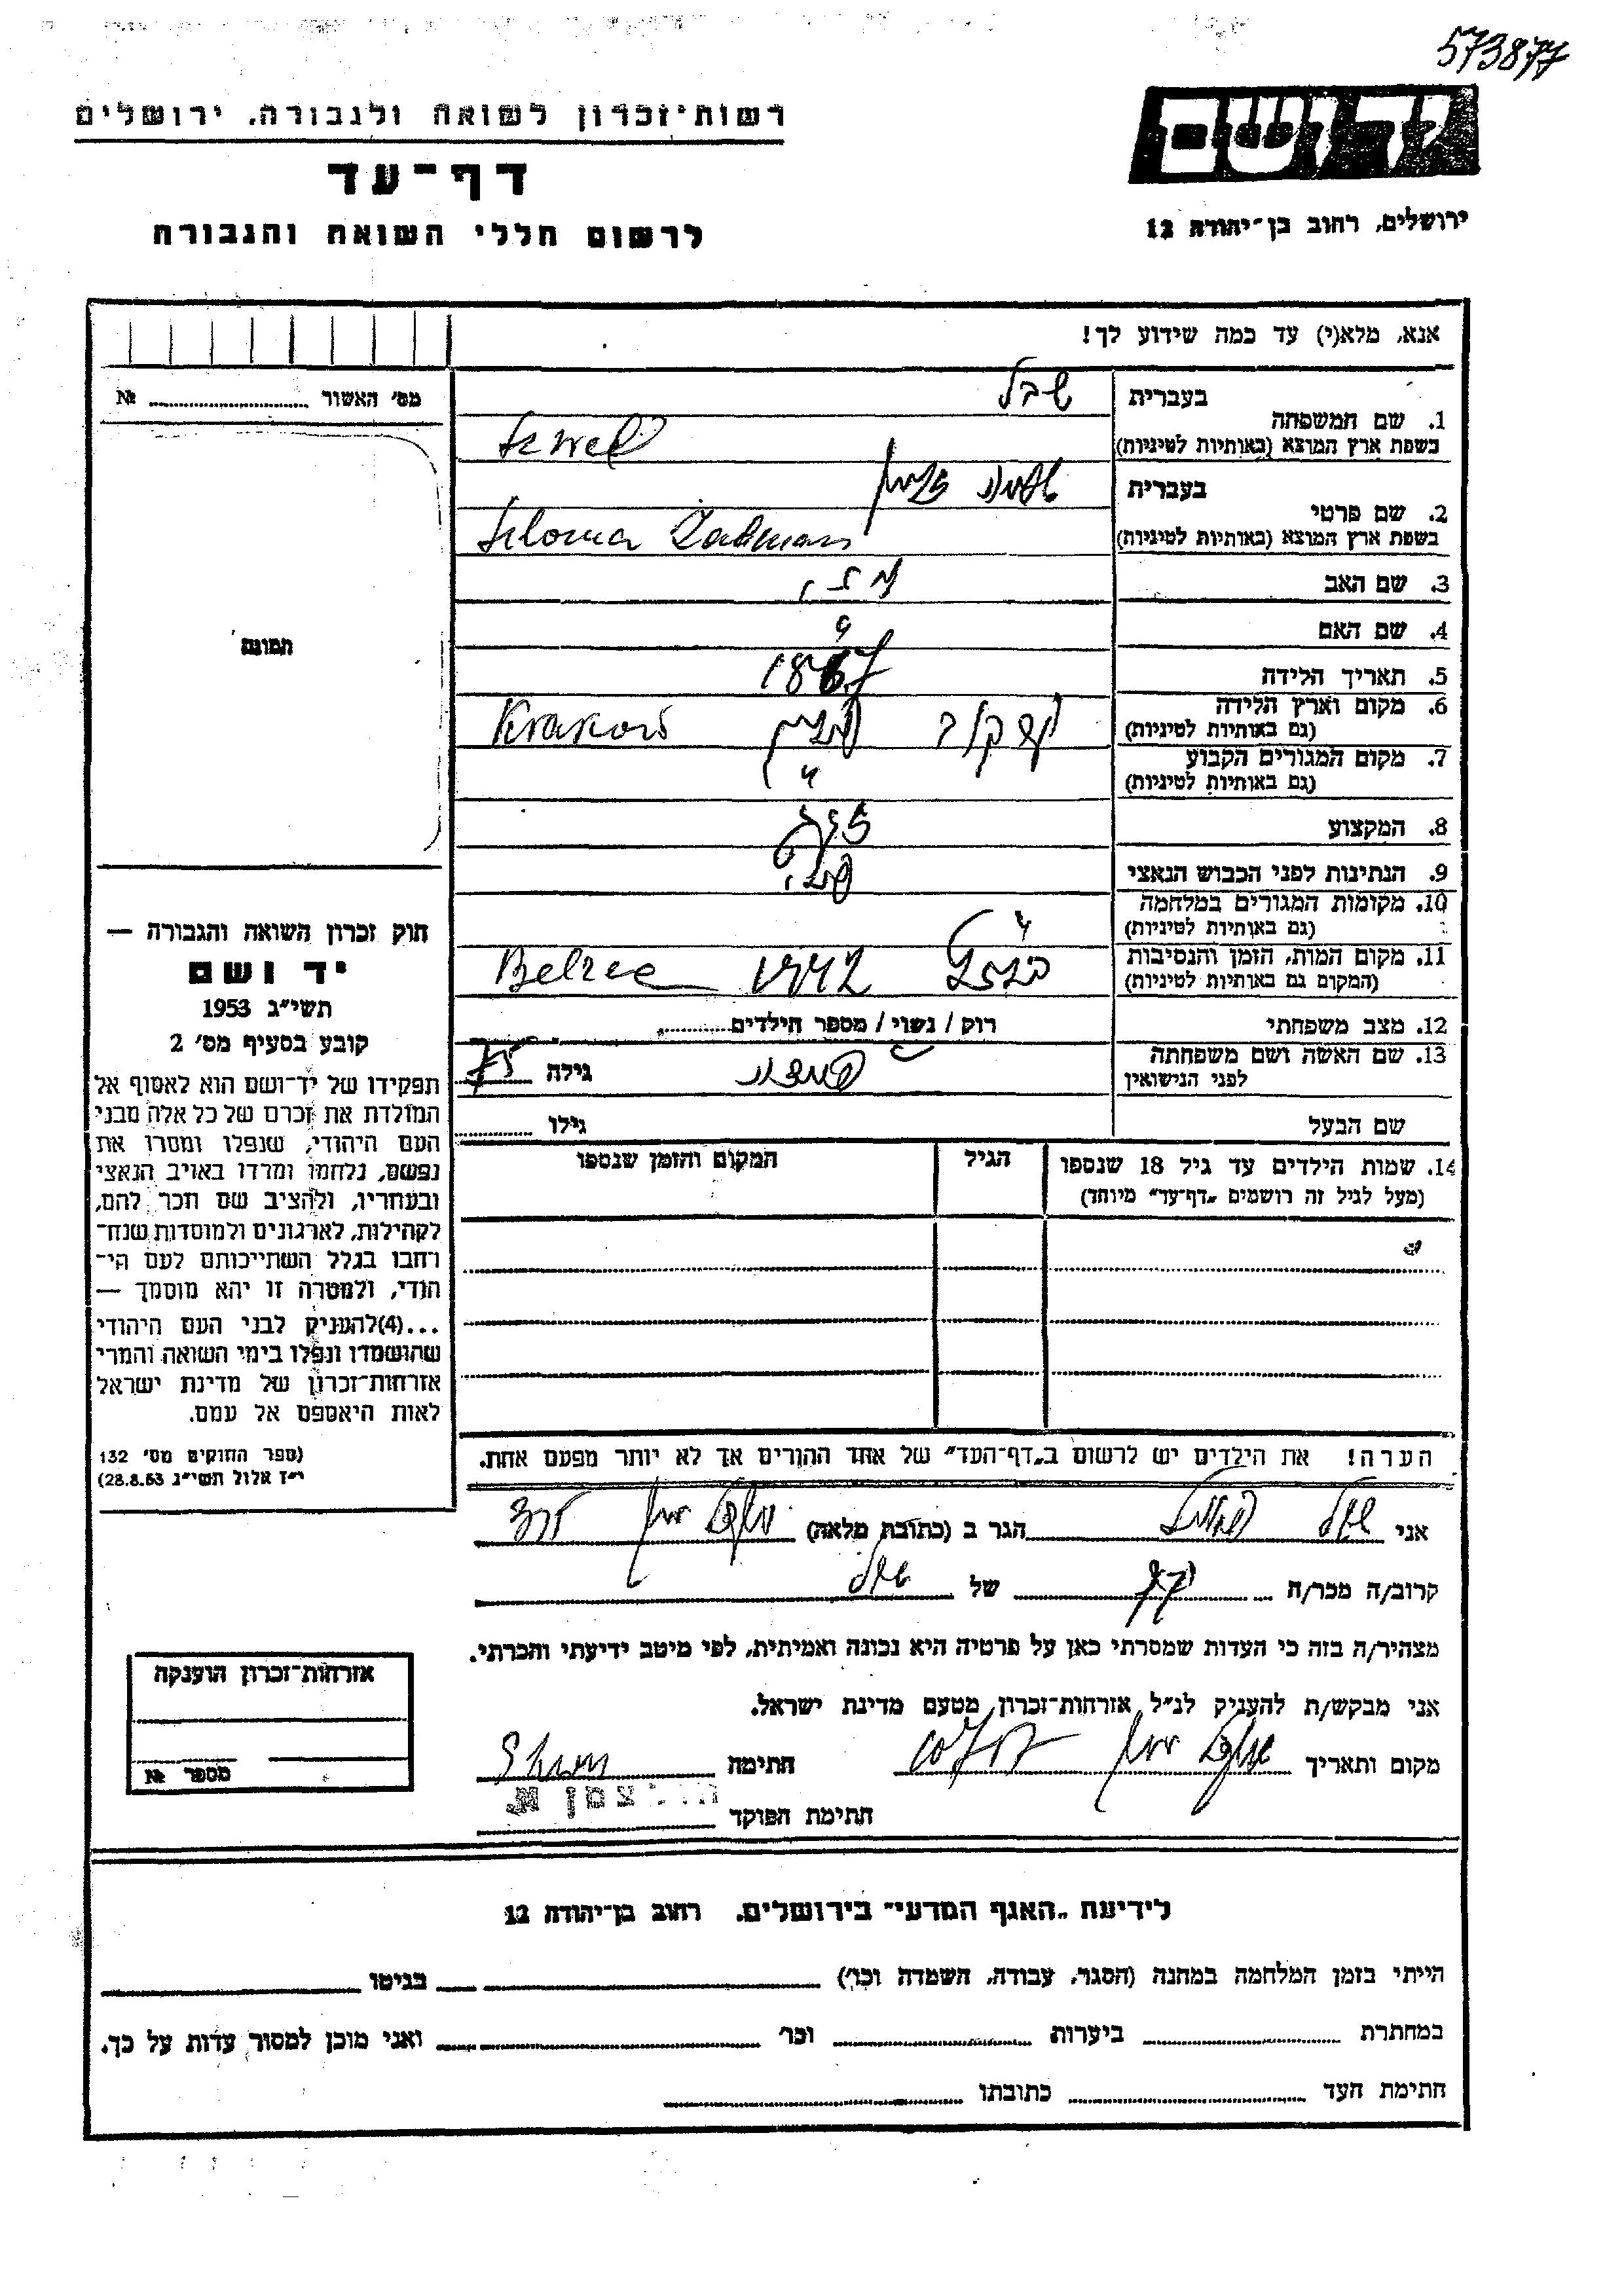 573877
רשות־זכרון לשואה ולגבורה. ירושלים
דף־עד
לרשום חללי השואה והגבורה
יד ושם
ירושלים, רחוב בן־יהודה 12
אנא, מלא(י) עד כמה שידוע לך!
מס׳ האשור № ....................
תמונה
בעברית
שבל
1. שם המשפחה
בשפת ארץ המוצא (באותיות לטיניות)
Szwel
בעברית
שלמה זלמן
2. שם פרטי
בשפת ארץ המוצא (באותיות לטיניות)
Szloma Zalman
3. שם האב
4. שם האם
?
5. תאריך הלידה
1867
6. מקום וארץ הלידה
(גם באותיות לטיניות)
קרקוב פולין Krakow
7. מקום המגורים הקבוע
(גם באותיות לטיניות)
"
8. המקצוע
9. הנתינות לפני הכבוש הנאצי
10. מקומות המגורים במלחמה
(גם באותיות לטיניות)
11. מקום המות, הזמן והנסיבות
(המקום גם באותיות לטיניות)
בלזץ 1942 Belzec
12. מצב משפחתי
רוק / נשוי / מספר הילדים..........
13. שם האשה ושם משפחתה
לפני הנישואין
גילה 75
שם הבעל
גילו ..........
14. שמות הילדים עד גיל 18 שנספו
(מעל לגיל זה רושמים „דף־עד״ מיוחד)
הגיל
המקום והזמן שנספו
חוק זכרון השואה והגבורה —
יד ושם
תשי״ג 1953
קובע בסעיף מס׳ 2
תפקידו של יד־ושם הוא לאסוף אל
המולדת את זכרם של כל אלה מבני
העם היהודי, שנפלו ומסרו את
נפשם, נלחמו ומרדו באויב הנאצי
ובעוזריו, ולהציב שם וזכר להם,
לקהילות, לארגונים ולמוסדות שנח־
רחבו בגלל השתייכותם לעם הי־
הודי, ולמטרה זו יהא מוסמך —
...(4)להעניק לבני העם היהודי
שהושמדו ונפלו בימי השואה והמרי
אזרחות־זכרון של מדינת ישראל
לאות היאספם אל עמם.
(ספר החוקים מס׳ 132
י״ז אלול תשי״ג 28.8.53)
הערה! את הילדים יש לרשום ב„דף־העד״ של אחד ההורים אך לא יותר מפעם אחת.
אני שבל הגר ב (כתובת מלאה)
קרוב/ה מכר/ה נכד של שבל
מצהיר/ה בזה כי העדות שמסרתי כאן על פרטיה היא נכונה ואמיתית, לפי מיטב ידיעתי והכרתי.
אני מבקש/ת להעניק לנ״ל אזרחות־זכרון מטעם מדינת ישראל.
מקום ותאריך חתימה
חתימת הפוקד
אזרחות־זכרון הוענקה
מספר №
לידיעת „האגף המדעי״ בירושלים. רחוב בן־יהודה 12
הייתי בזמן המלחמה במחנה (הסגר, עבודה, השמדה וכו׳) בגיטו
במחתרת ביערות וכו׳ ואני מוכן למסור עדות על כך.
חתימת העד כתובתו